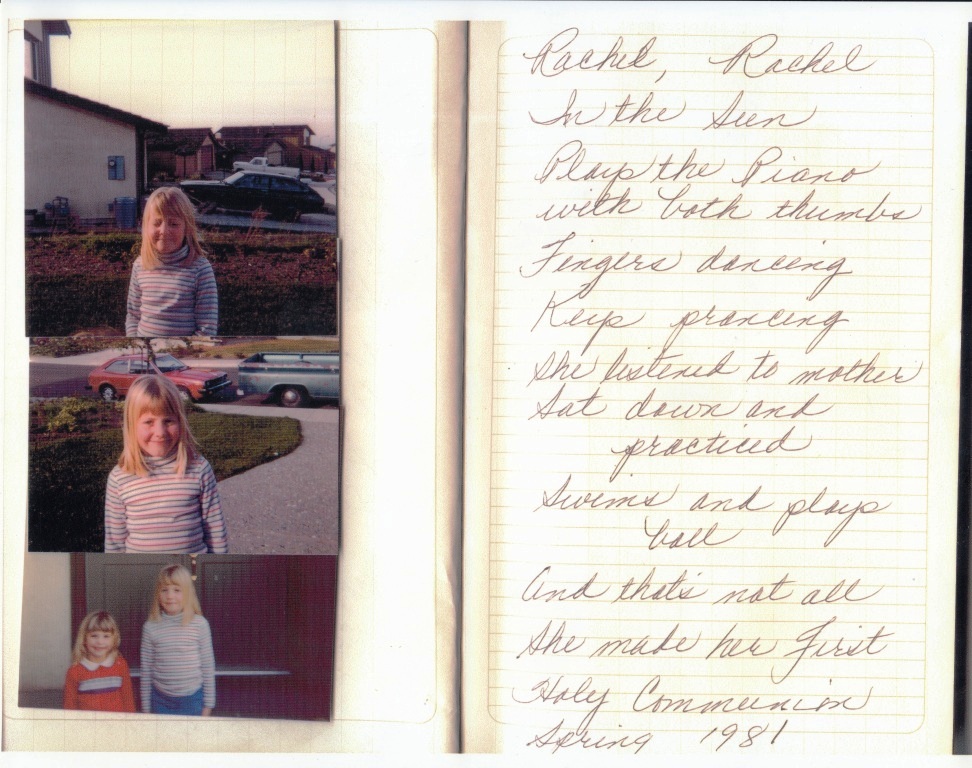 Rachel, Rachel
In the Sun
Plays the Piano
with both thumbs
Fingers dancing
Keep prancing
She listened to mother
Sat down and
practiced
Swims and plays
ball
And that's not all
She made her First
Holy Communion
Spring 1981